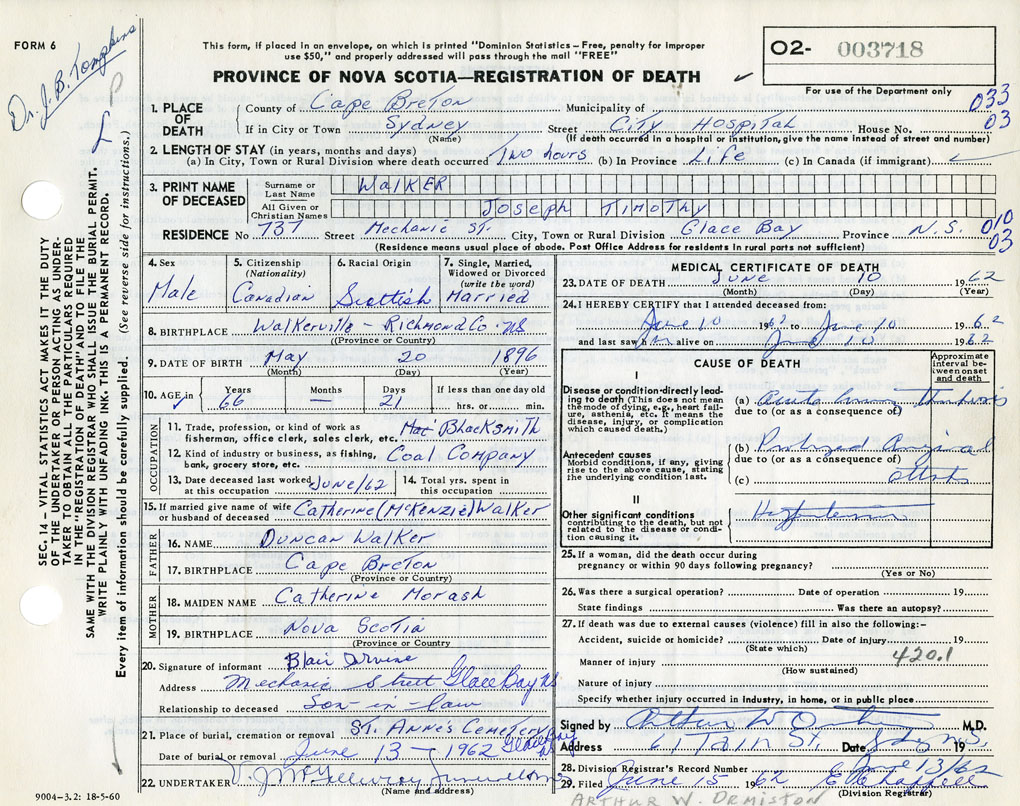 FORM 6
Dr. J. B. Tompkins
This form, if placed in an envelope, on which is printed "Dominion Statistics – Free, penalty for improper
use $50," and properly addressed will pass through the mail "FREE"
PROVINCE OF NOVA SCOTIA—REGISTRATION OF DEATH
O2- 003718
For use of the Department only
033
03
SEC. 14 – VITAL STATISTICS ACT MAKES IT THE DUTY
OF THE UNDERTAKER OR PERSON ACTING AS UNDER-
TAKER TO OBTAIN ALL THE PARTICULARS REQUIRED
IN THE "REGISTRATION OF DEATH" AND TO FILE THE
SAME WITH THE DIVISION REGISTRAR WHO SHALL ISSUE THE BURIAL PERMIT.
WRITE PLAINLY WITH UNFADING INK. THIS IS A PERMANENT RECORD.
Every item of information should be carefully supplied. (See reverse side for instructions.)
1. PLACE OF DEATH
County of Cape Breton Municipality of
If in City or Town Sydney Street City Hospital House No.
(Name) (If death occurred in a hospital or institution, give the name instead of street and number)
2. LENGTH OF STAY (in years, months and days)
(a) In City, Town or Rural Division where death occurred Two hours (b) In Province Life (c) In Canada (if immigrant)
3. PRINT NAME OF DECEASED
Surname or Last Name WALKER
All Given or Christian Names JOSEPH TIMOTHY
RESIDENCE No 737 Street Mechanic St. City, Town or Rural Division Glace Bay Province N.S.
010
03
(Residence means usual place of abode. Post Office Address for residents in rural parts not sufficient)
4. Sex Male
5. Citizenship (Nationality) Canadian
6. Racial Origin Scottish
7. Single, Married, Widowed or Divorced (write the word) Married
8. BIRTHPLACE Walkerville – Richmond Co. NS
(Province or Country)
9. DATE OF BIRTH May 20 1896
(Month) (Day) (Year)
10. AGE in Years 66 Months — Days 21 If less than one day old hrs. or min.
OCCUPATION
11. Trade, profession, or kind of work as fisherman, office clerk, sales clerk, etc. Blacksmith
12. Kind of industry or business, as fishing, bank, grocery store, etc. Coal Company
13. Date deceased last worked at this occupation June/62
14. Total yrs. spent in this occupation
15. If married give name of wife or husband of deceased Catherine (McKenzie) Walker
FATHER
16. NAME Duncan Walker
17. BIRTHPLACE Cape Breton
(Province or Country)
MOTHER
18. MAIDEN NAME Catherine Morash
19. BIRTHPLACE Nova Scotia
(Province or Country
20. Signature of informant Blair
Address Mechanic Street Glace Bay NS
Relationship to deceased Son-in-law
21. Place of burial, cremation or removal St. Anne's Cemetery
Glace Bay
Date of burial or removal June 13 – 1962
22. UNDERTAKER
(Name and address)
9004-3.2: 18-5-60
MEDICAL CERTIFICATE OF DEATH
23. DATE OF DEATH June 10 1962
(Month) (Day) (Year)
24. I HEREBY CERTIFY that I attended deceased from:
June 10 1962 to June 10 1962
and last saw him alive on June 10 1962
CAUSE OF DEATH
Approximate interval between onset and death
I
Disease or condition directly leading to death (This does not mean the mode of dying, e.g., heart failure, asthenia, etc. It means the disease, injury, or complication which caused death.)
(a) Acute Thrombosis
due to (or as a consequence of)
Antecedent causes
Morbid conditions, if any, giving rise to the above cause, stating the underlying condition last.
(b) Prolonged Anginal
due to (or as a consequence of)
(c) attack
II
Other significant conditions
contributing to the death, but not related to the disease or condition causing it.
Hypertension
25. If a woman, did the death occur during
pregnancy or within 90 days following pregnancy?
(Yes or No)
26. Was there a surgical operation? Date of operation 19
State findings Was there an autopsy?
27. If death was due to external causes (violence) fill in also the following:–
Accident, suicide or homicide? Date of injury 19
(State which)
420.1
Manner of injury
(How sustained)
Nature of injury
Specify whether injury occurred in industry, in home, or in public place
Signed by M.D.
Address St. Date 19
June 13/62
28. Division Registrar's Record Number
29. Filed June 15 1962
(Division Registrar)
ARTHUR W. ORMISTON